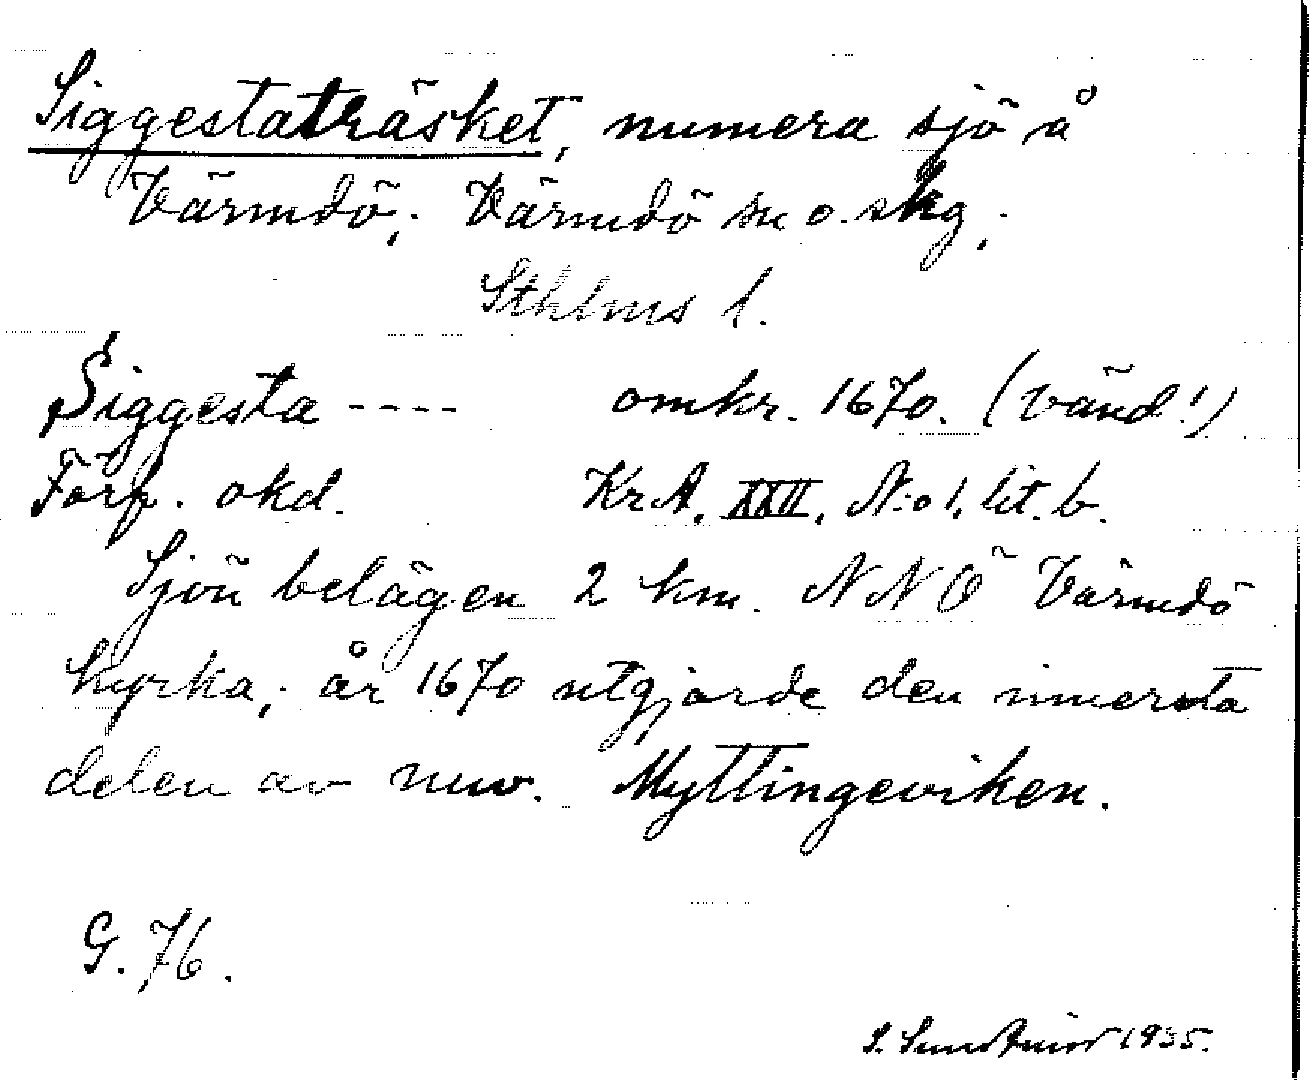 Siggestaträsket, numera sjö å
Värmdö; Värmdö sn o. skg;
Sthlms l.
Siggesta ---- omkr. 1670. (vänd!)
Förf. okd. KrA, XXII, N:o 1, lit. b.
Sjön belägen 2 km. NNÖ Värmdö
kyrka; år 1670 utgjorde den innersta
delen av nuv. Myttingeviken.
G. 76.
S. 1935.